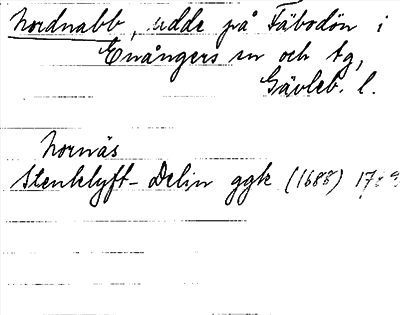 Nordnabb, udde på Fäbodön i
Enångers sn och tg,
Gävleb. l.
Nornäs
Stenklyft-Delin ggk (1688)